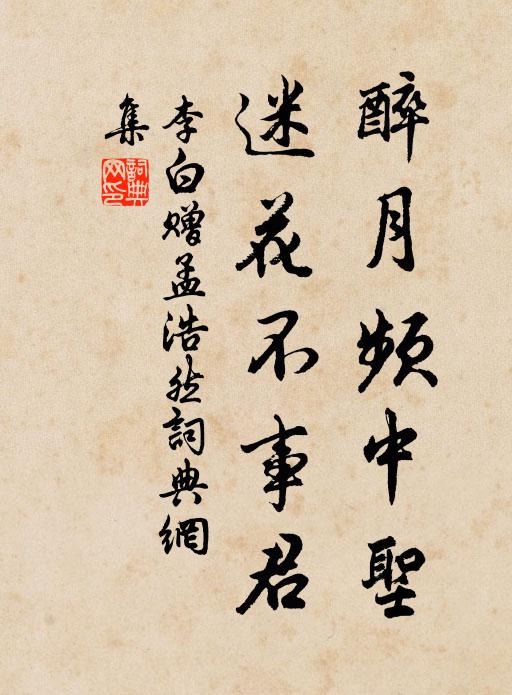 醉月頻中聖
迷花不事君
李白贈孟浩然詞典網
集
詞典
网印